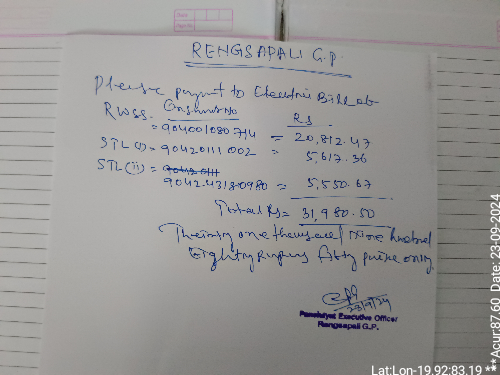 RENGSAPALI G.P.
Please payment to Electric Bill at
RWSS. Consumer No
Rs
= 904001080714 = 20,812.47
STL(i) = 90420111002 = 5,617.36
STL(ii) =
9042.43180980 = 5,550.67
Total Rs = 31,980.50
Thirty one thousand Nine hundred
Eighty Rupees fifty paise only.
23/9/24
Panchayat Executive Officer
Rengsapali G.P.
Lat:Lon-19.92:83.19 **Acur:87.60 Date: 23-09-2024